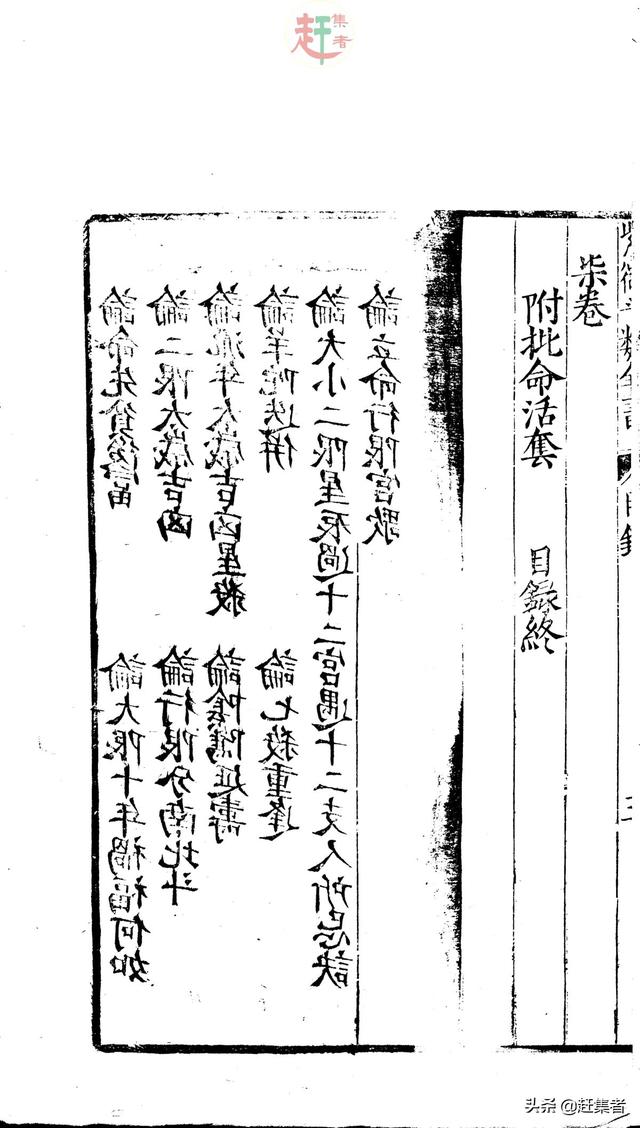 柒卷
附批命活套 目錄終
論立命行限宮歌
論大小二限星辰過十二宮遇十二支人所忌訣
論羊陀迭併 論七殺重逢
論流年太歲吉凶星殺 論陰騭延壽
論二限太歲吉凶 論行限分南北斗
論命先貧後富 論大限十年禍福何如
趕集者
头条 @赶集者